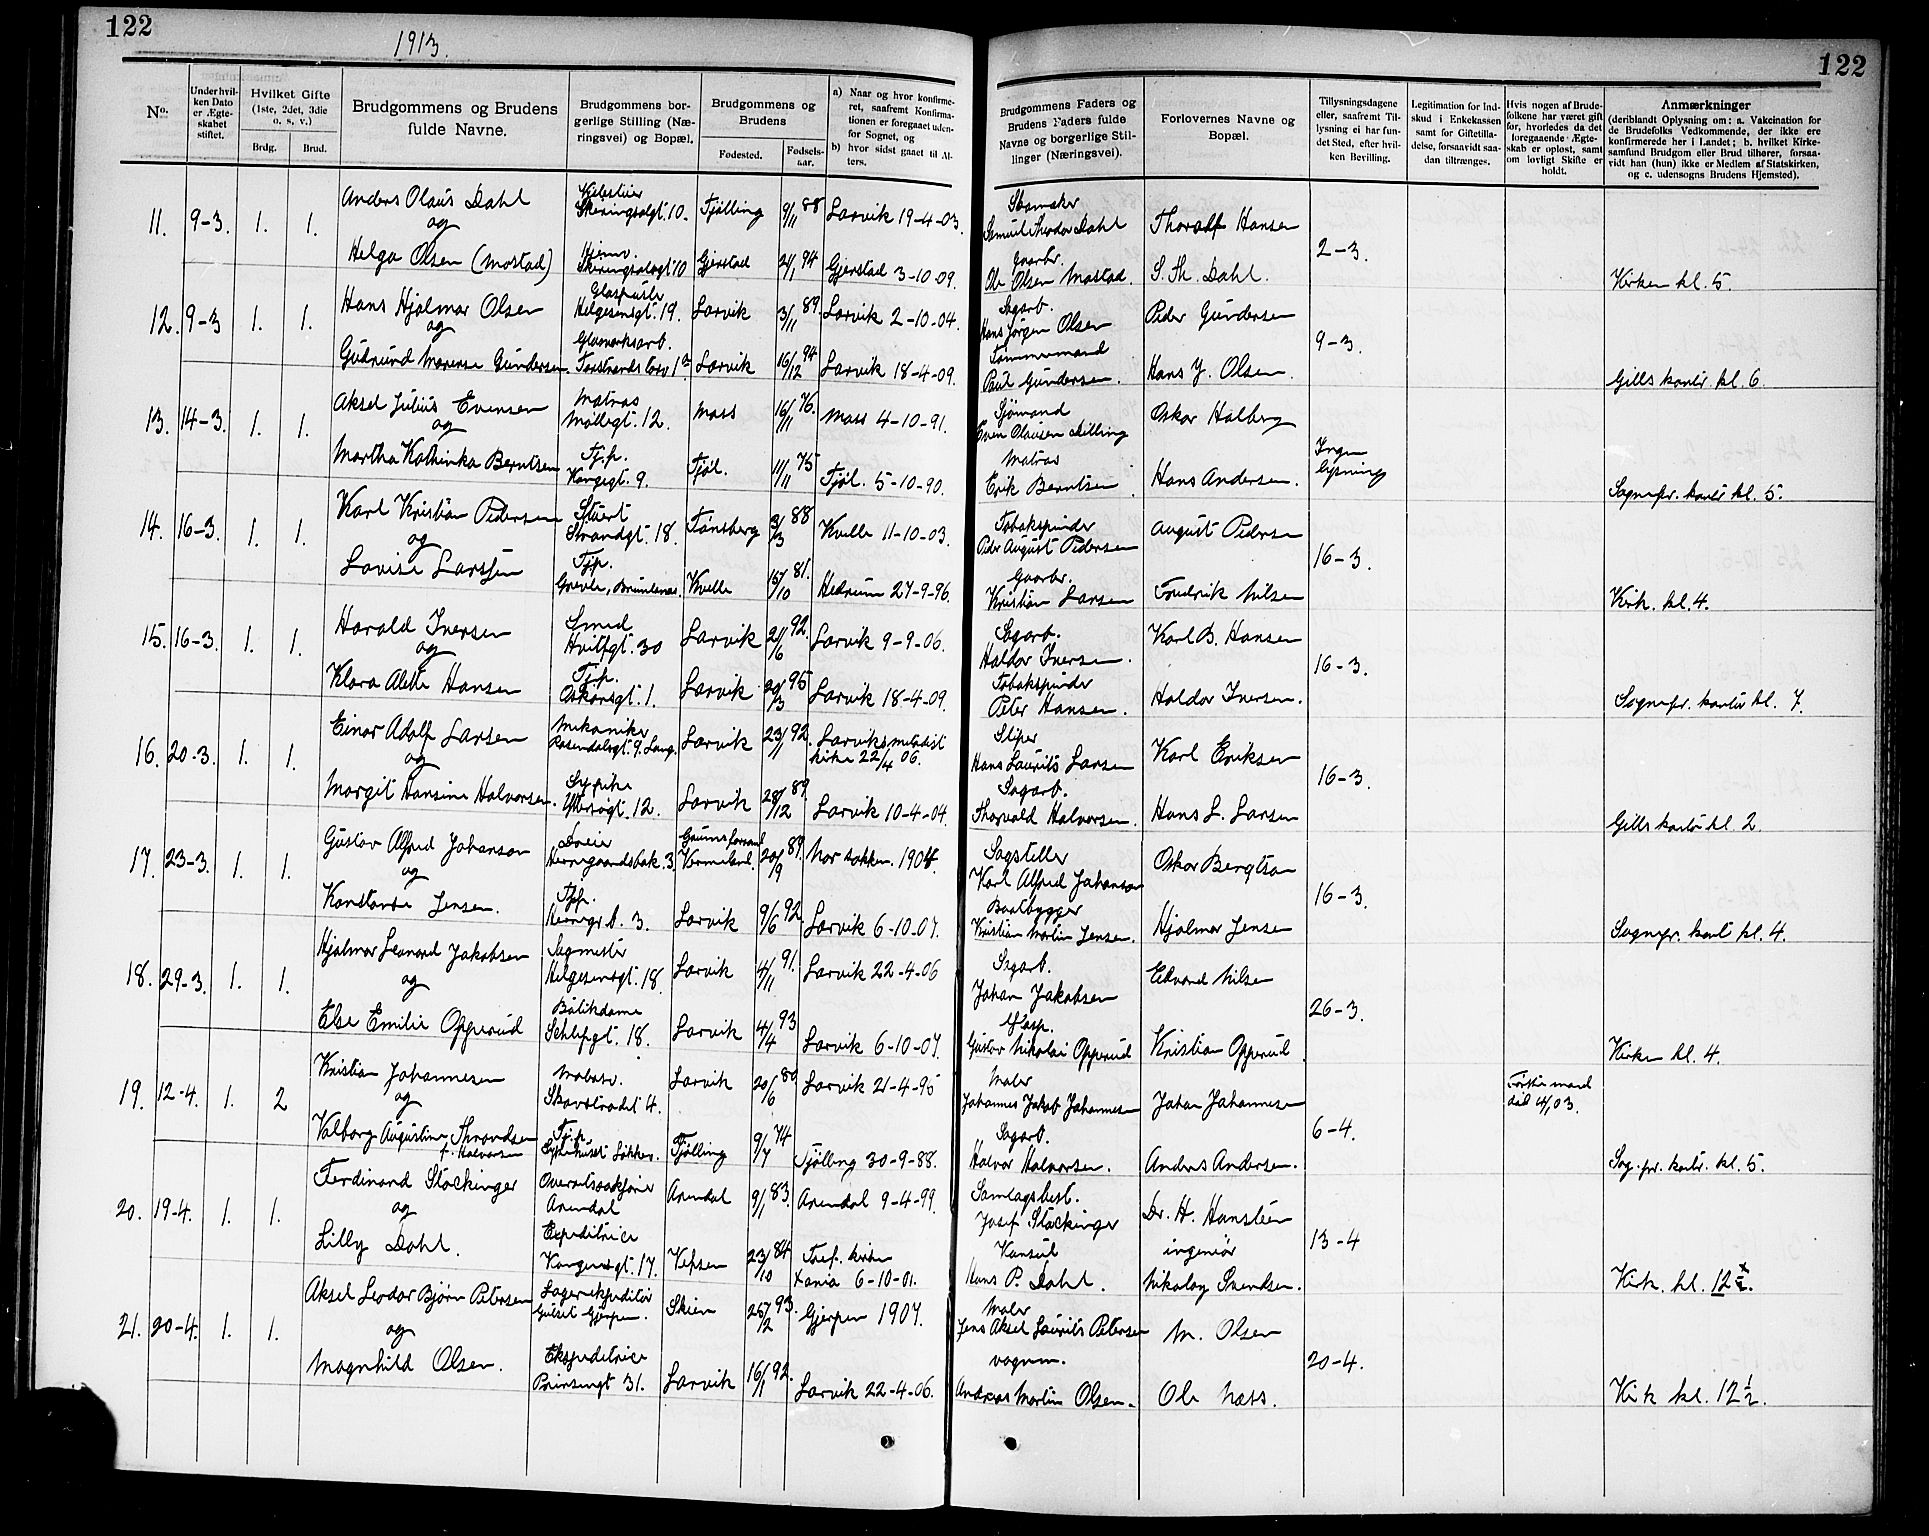 122
1913.
122
No.
Under hvilken Dato er Ægteskabet stiftet.
Hvilket Gifte (1ste, 2det, 3die o. s. v.)
Brdg.
Brud.
Brudgommens og Brudens fulde Navne.
Brudgommens borgerlige Stilling (Næringsvei) og Bopæl.
Brudgommens og Brudens
Fødested.
Fødselsaar.
a) Naar og hvor konfirmeret, saafremt Konfirmationen er foregaaet udenfor Sognet, og
b) hvor sidst gaaet til Alters.
Brudgommens Faders og Brudens Faders fulde Navne og borgerlige Stillinger (Næringsvei).
Forlovernes Navne og Bopæl.
Tillysningsdagene eller, saafremt Tillysning ei har fundet Sted, efter hvilken Bevilling.
Legitimation for Indskud i Enkekassen samt for Giftetilladelse, forsaavidt saadan tiltrænges.
Hvis nogen af Brudefolkene har været gift før, hvorledes da det foregaaende Ægteskab er opløst, samt om lovligt Skifte er holdt.
Anmærkninger
(deriblandt Oplysning om: a. Vakcination for de Brudefolks Vedkommende, der ikke ere konfirmerede her i Landet; b. hvilket Kirkesamfund Brudgom eller Brud tilhører, forsaavidt han (hun) ikke er Medlem af Statskirken, og c. udensogns Brudens Hjemsted).
11. 9-3. 1. 1. Anders Olaus Dahl Skeringsalgt. 10. Tjølling 9/11 88 Larvik 19-4-03. Samuel Theodor Dahl Thoralf Hansen 2-3.
og
Helga Olsen (Mostad) Hjemv. Skeringsalgt 10 Gjerstad 21/1 94 Gjerstad 3-10-09. Gaarbr. Ole Olsen Mostad. S. Th. Dahl. Kirken kl. 5.
12. 9-3 1. 1. Hans Hjalmar Olsen Glaspuster Helgesensgt. 19. Larvik 3/11 89. Larvik 2-10-04. Sagarb. Hans Jørgen Olsen Peder Gundersen 9-3.
og
Gudrund Marense Gundersen. Glasverksarb. Torstrands torv 1a. Larvik 16/12 94 Larvik 18-4-09. Tømmermand Paul Gundersen. Hans J. Olsen. Gills kontr. kl. 6.
13. 14-3. 1. 1. Aksel Julius Evensen Matros Møllegt. 12. Moss 16/11 76. Moss 4-10-91. Sjømand Even Olausen Dilling Oskar Halberg Ingen lysning
og
Martha Kathinka Berntsen Tj.p. Kongegt. 9. Tjøl. 11/11 75 Tjøl. 5-10-90. Matros Erik Berntsen Hans Andersen. Sognepr. kontr kl. 5.
14. 16-3. 1. 1. Karl Kristian Pedersen Stuert Strandgt. 18. Tønsberg 3/3 88 Kvelle 11-10-03. Tobakspinder Peder August Pedersen August Pedersen 16-3.
og
Lovise Larssen Tj.p. Grevle, Brunlanes. Kvelle 15/10 81. Hedrum 27-9-96. Gaarbr. Kristian Larsen Fredrik Nilsen Kirk. kl. 4.
15. 16-3. 1. 1. Harald Iversen Smed Hvilfgt. 30 Larvik 21/6 92. Larvik 9-9-06. Sagarb. Haldor Iversen. Karl B. Hansen 16-3.
og
Klara Alette Hansen Tj.p. Oskarsgt. 1. Larvik 20/3 95 Larvik 18-4-09. Tobakspinder Peter Hansen. Haldor Iversen. Sognepr. kontor kl. 7.
16. 20-3. 1. 1. Einar Adolf Larsen Mekaniker Rosendalsgt. 9. Lang. Larvik 23/11 92. Larviks metodist kirke 22/4 06. Sliper Hans Laurits Larsen Karl Eriksen 16-3.
og
Margit Hansine Halvorsen. Sypike 12. Larvik 28/12 89. Larvik 10-4-04. Sagarb. Thorvald Halvorsen. Hans L. Larsen Gills kontor kl. 2
17. 23-3. 1. 1. Gustav Alfred Johanson Dreier Herregaardsbak. 3. Vermeland. 20/9 89. Nor sokken. 1904. Sagstiller Karl Alfred Johanson Oskar Bergtson 16-3.
og
Konstanse Jensen. Tj.p. Herregr. b. 3. Larvik 9/6 92. Larvik 6-10-07. Baatbygger Kristian Martin Jensen. Hjalmar Jensen Sognepr. kont kl. 4.
18. 29-3. 1. 1. Hjalmar Leonard Jakobsen Sagmester Helgesensgt. 18. Larvik 4/11 91. Larvik 22-4-06 Sagarb. Johan Jakobsen Edvard Nilsen 26-3.
og
Else Emilie Opperud Butikdame 18. Larvik 4/4 93 Larvik 6-10-07. Gustav Nikolai Opperud Kristian Opperud Kirken kl. 4.
19. 12-4. 1. 2 Kristian Johannesen Larvik 20/6 80 Larvik 21-4-95 Maler Johannes Jakob Johannesen Johan Johannesen 6-4. Første mand død 4/1 03.
og
Valborg Augustine Throndsen f. Halvorsen Tj.p. Sykehuset Løkken. Tjølling 9/7 74 Tjølling 30-9-88. Sagarb. Halvor Halvorsen. Anders Andersen. Sog. pr. kontr. kl. 5.
20. 19-4. 1. 1. Ferdinand Stockinger Overretssakfører Arendal Arendal 9/1 83. Arendal 9-4-99. Samlagsbest. Josef Stockinger Dr. H. Hansteen 13-4
og
Lilly Dahl. Expeditrice Kongensgt. 17. Vefsen 23/10 84 Tref. kirken Xania 6-10-01. Konsul Hans P. Dahl. ingeniør Nikolay Svendsen. Kirk. kl. 12 ½.
21. 20-4. 1. 1. Aksel Leodor Bjørn Petersen Lagerekspeditør Gulset Gjerpen. Skien 25/12 93. Gjerpen 1907. Maler Jens Aksel Laurits Petersen M. Olsen 20-4.
og
Magnhild Olsen. Ekspeditrice Prinsensgt 31. Larvik 16/1 92. Larvik 22-4-06. vognm. Andreas Martin Olsen. Ole Næss. Kirk kl. 12 ½.